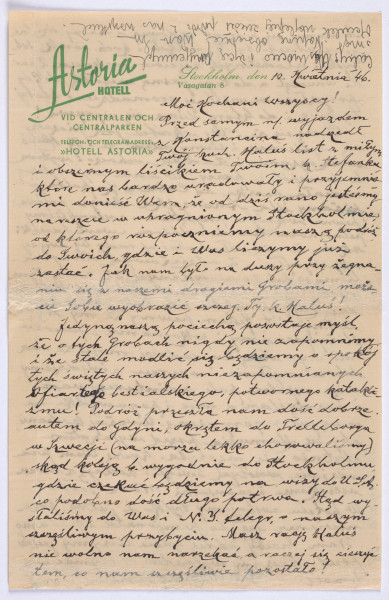 Astoria
HOTELL
VID CENTRALEN OCH
CENTRALPARKEN
TELEFON- OCH TELEGRAMADRESS:
»HOTELL ASTORIA»
Stockholm den 10. Kwietnia 46.
Vasagatan 6
Moi Kochani Wszyscy!
Przed samym n/ wyjazdem
z Konstancina nadszedł
Twój koch. Haluś list z
i obszernym liścikiem Twoim, k. Stefanku
które nas bardzo uradowały i przyjemnie
mi donieść Wam, że od dziś rano jesteśmy
nareszcie w upragnionym Stockholmie,
od którego rozpoczniemy naszą podróż
do Swoich, gdzie i Was liczymy już
zastać. Jak nam było na duszy przy żegna-
niu się z naszemi drogiemi Grobami, może-
cie Sobie wyobrazić szczeg. Ty, k. Haluś!
Jedyną naszą pociechą pozostaje myśl,
że o tych Grobach nigdy nie zapomnimy
i że stale modlić się będziemy o spokój
tych świętych naszych niezapomnianych
Ofiar tego bestialskiego, potwornego katakli-
zmu! Podróż przeszła nam dość dobrze:
autem do Gdyni, okrętem do Trelleborga
w Szwecji (na morzu lekko chorowaliśmy)
skąd koleją b. wygodnie do Stockholmu,
gdzie czekać będziemy na wizy do U.S.A.,
co podobno dość długo potrwa. Stąd wy-
słaliśmy do Was i N.Y. telegr. o naszym
szczęśliwym przybyciu. Masz rację Haluś
nie wolno nam narzekać, a raczej się cieszyć
tem, co nam szczęśliwie pozostało!